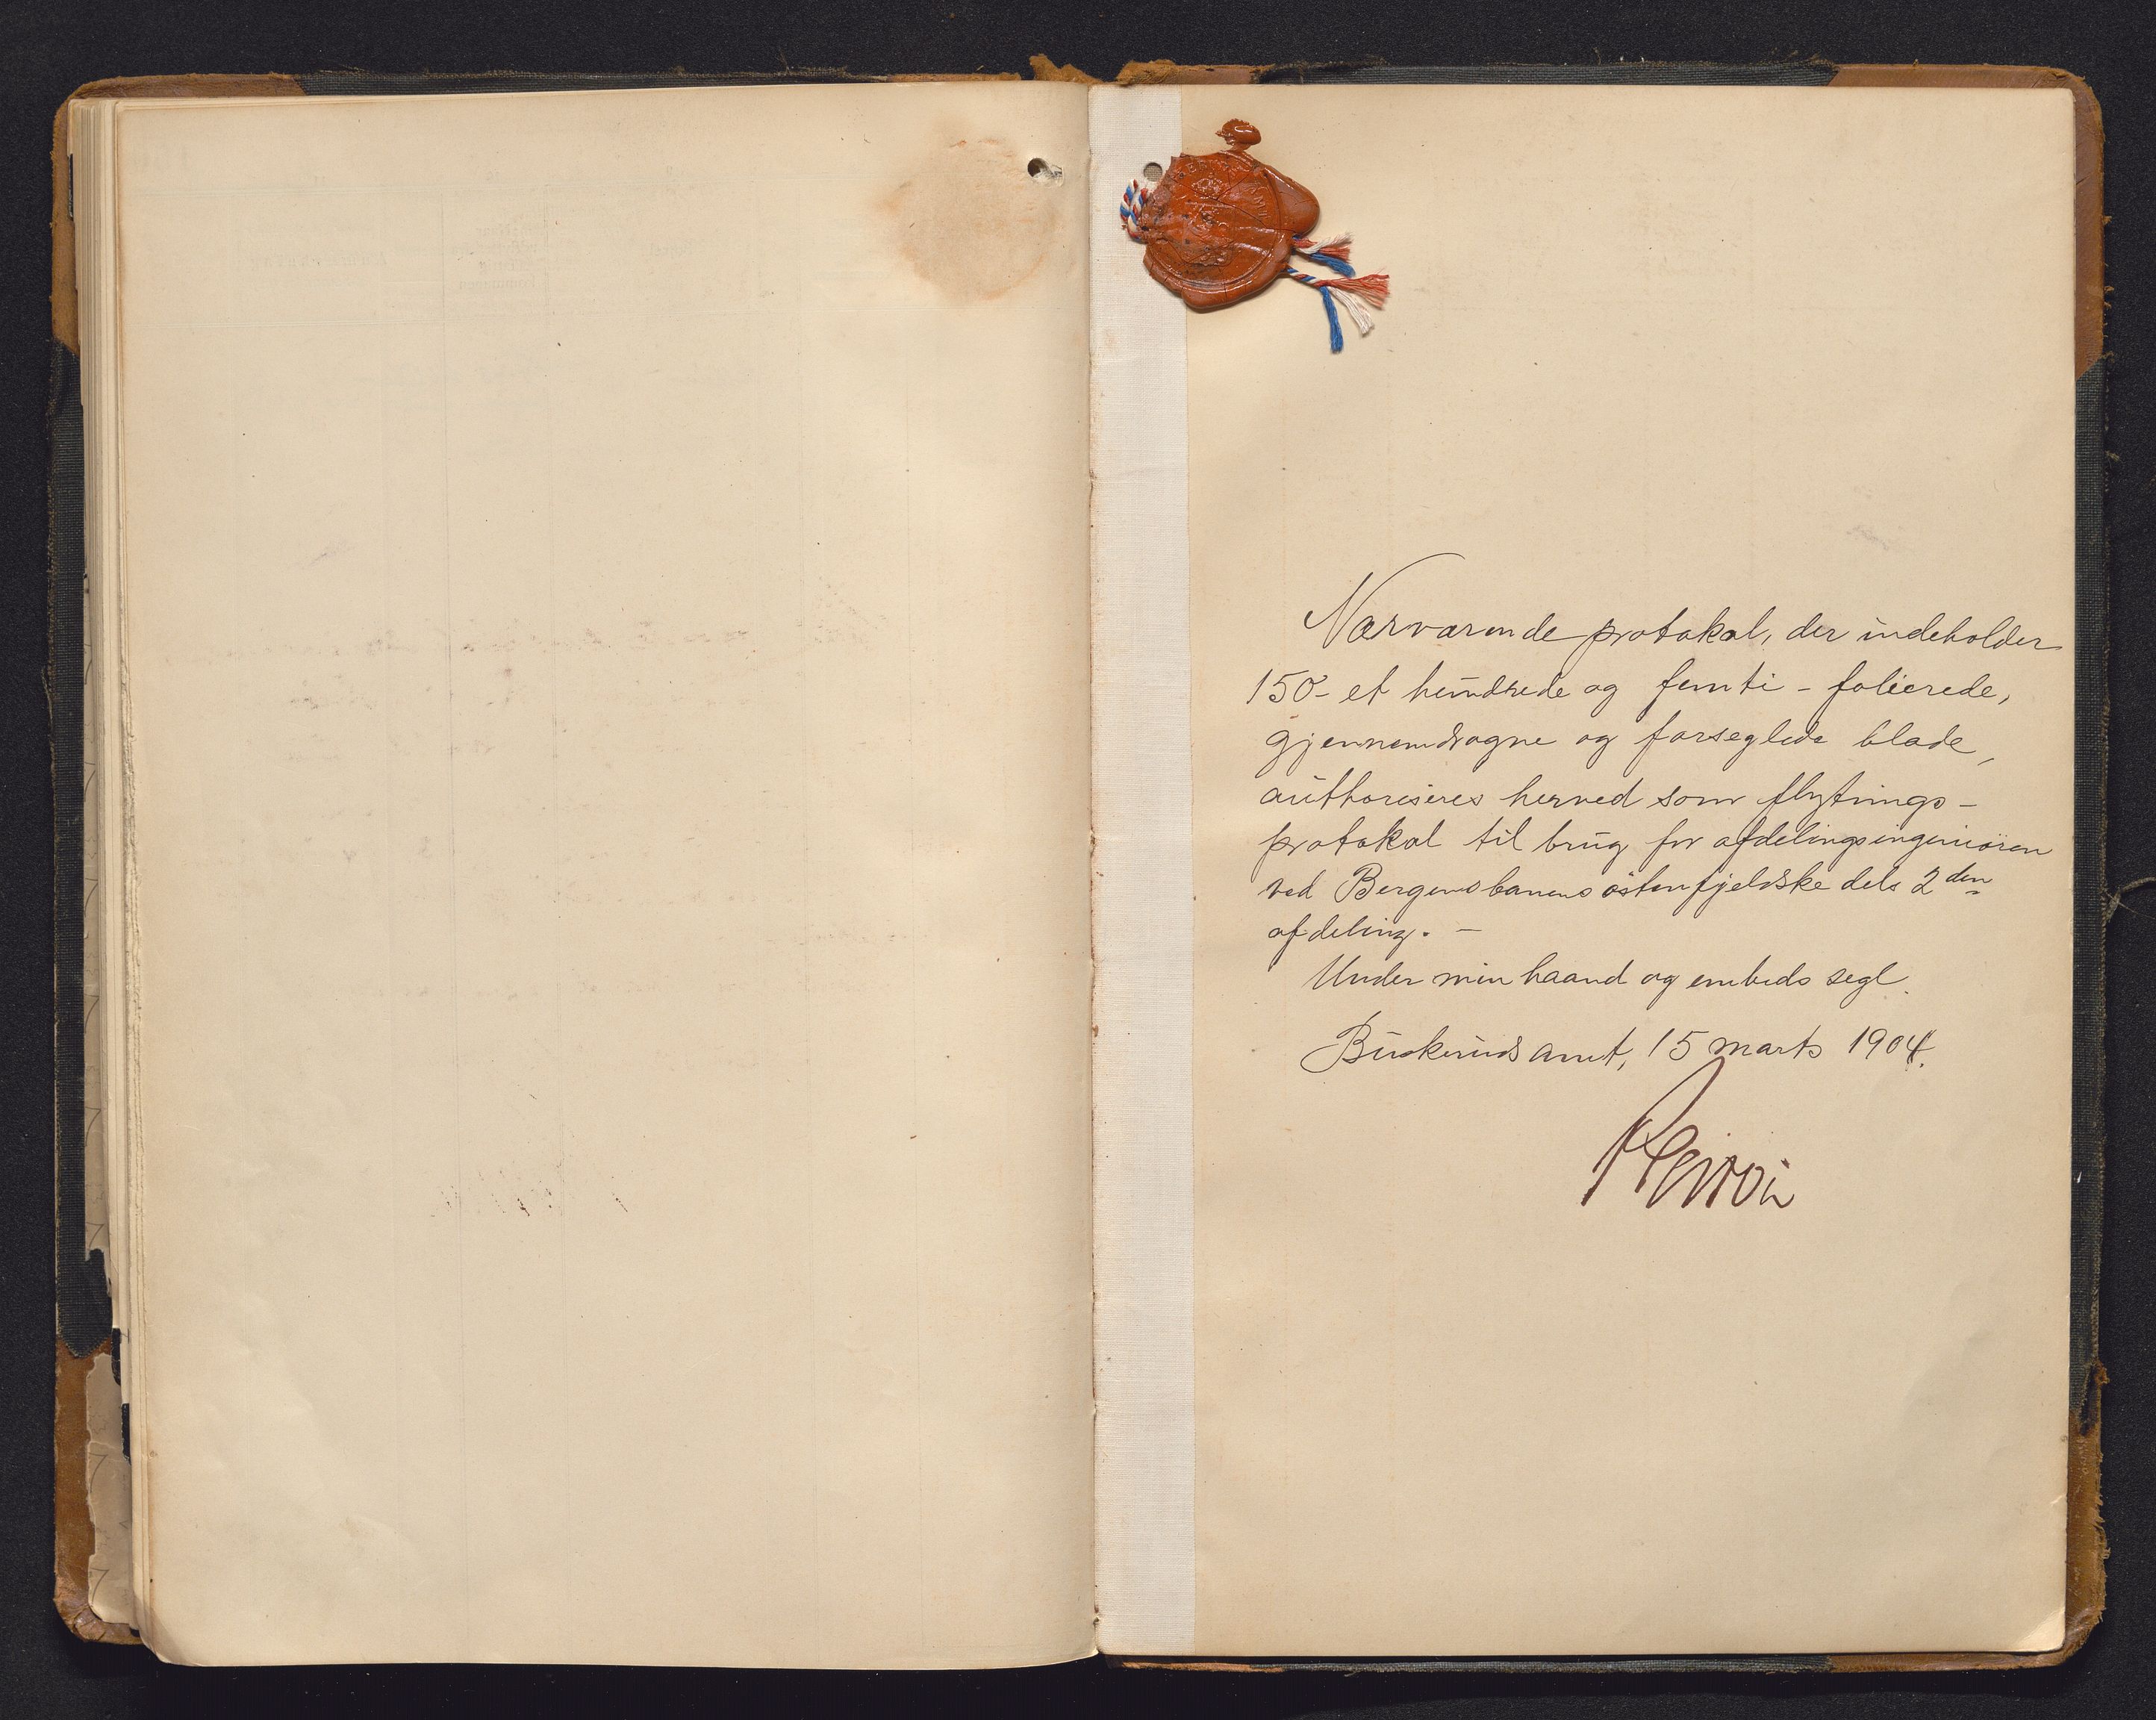 Nærværende protokol, der indeholder
150 - et hundrede og femti - folierede,
gjennemdragne og forseglede blade,
authoriseres herved som flytnings-
protokol til brug for afdelingsingeniören
ved Bergensbanens östenfjeldske dels 2den
afdeling. -
Under min haand og embeds segl.
Buskeruds amt, 15 marts 1904.